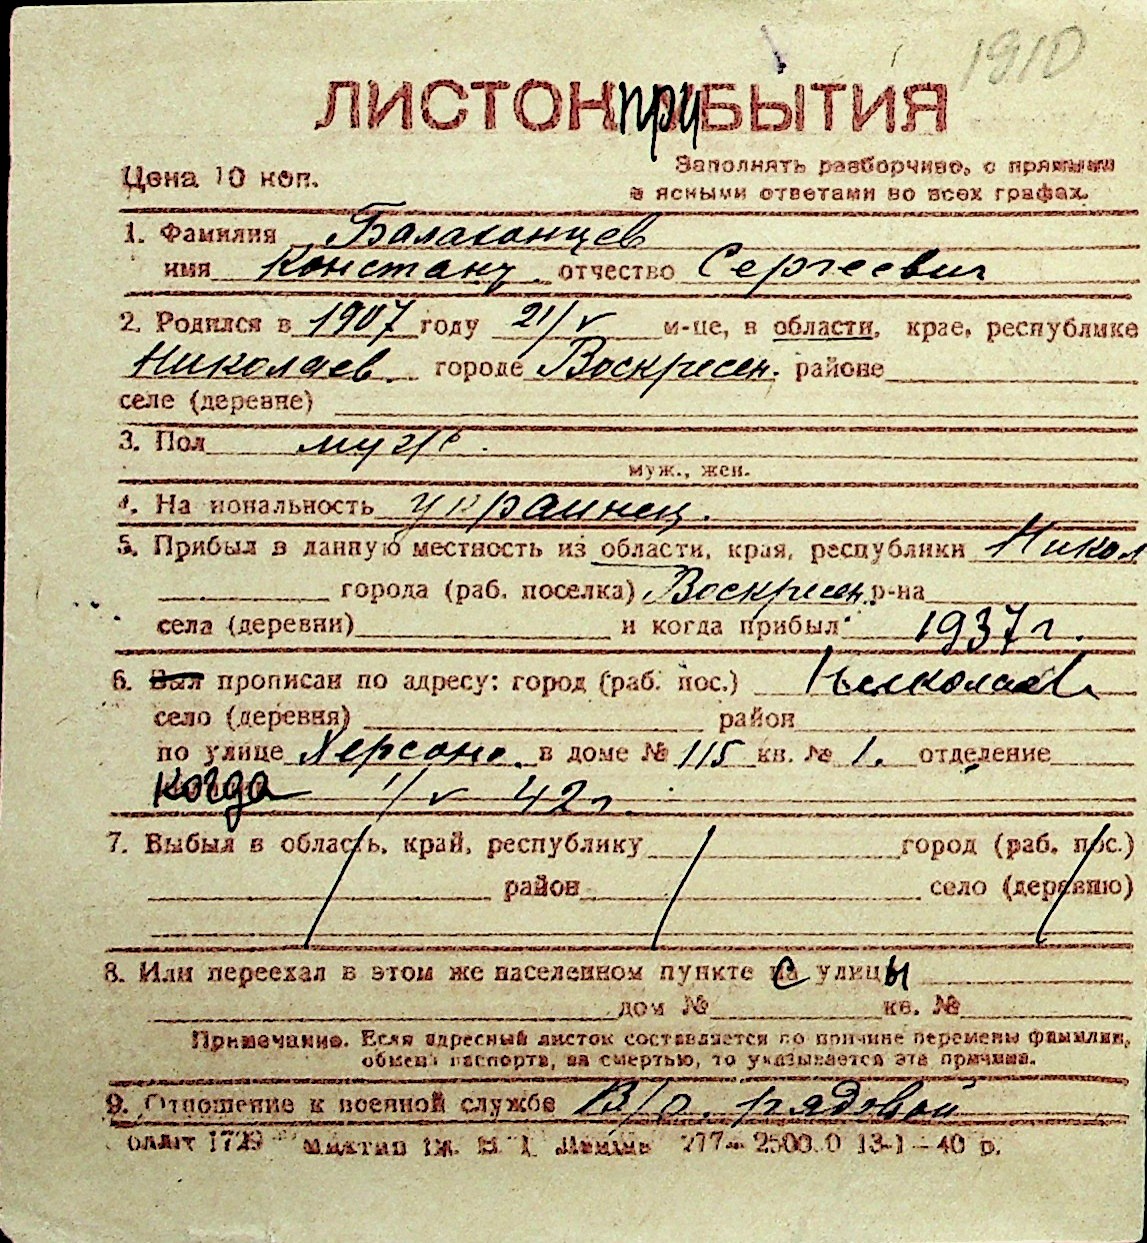 1910
ЛИСТОК ПРИБЫТИЯ
Цена 10 коп.
Заполнять разборчиво, с прямыми
и ясными ответами во всех графах.
1. Фамилия Балаканцев
имя Констант. отчество Сергеевич
2. Родился в 1907 году 21/V м-це, в области, крае, республике
Николаев. городе Воскресен. районе
селе (деревне)
3. Пол муж.
муж., жен.
4. Национальность украинец.
5. Прибыл в данную местность из области, края, республики Никол
города (раб. поселка) Воскресен. р-на
села (деревни) и когда прибыл 1937 г.
6. Был прописан по адресу: город (раб. пос.) Николаев
село (деревня) район
по улице Херсонс. в доме № 115 кв. № 1. отделение
когда 1/V 42 г.
7. Выбыл в область, край, республику город (раб. пос.)
район село (деревню)
8. Или переехал в этом же населенном пункте с улицы
дом № кв. №
Примечание. Если адресный листок составляется по причине перемены фамилии,
обмена паспорта, за смертью, то указывается эта причина.
9. Отношение к военной службе В/о. рядовой
1729 277 2500.0 13-1-40 р.